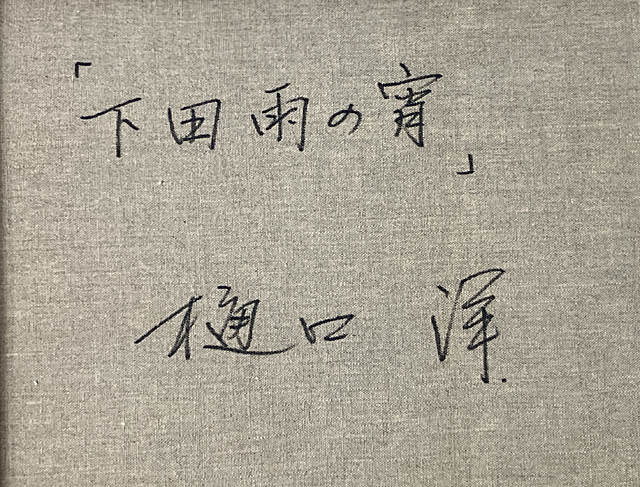 「下田雨の宵」
樋口 洋